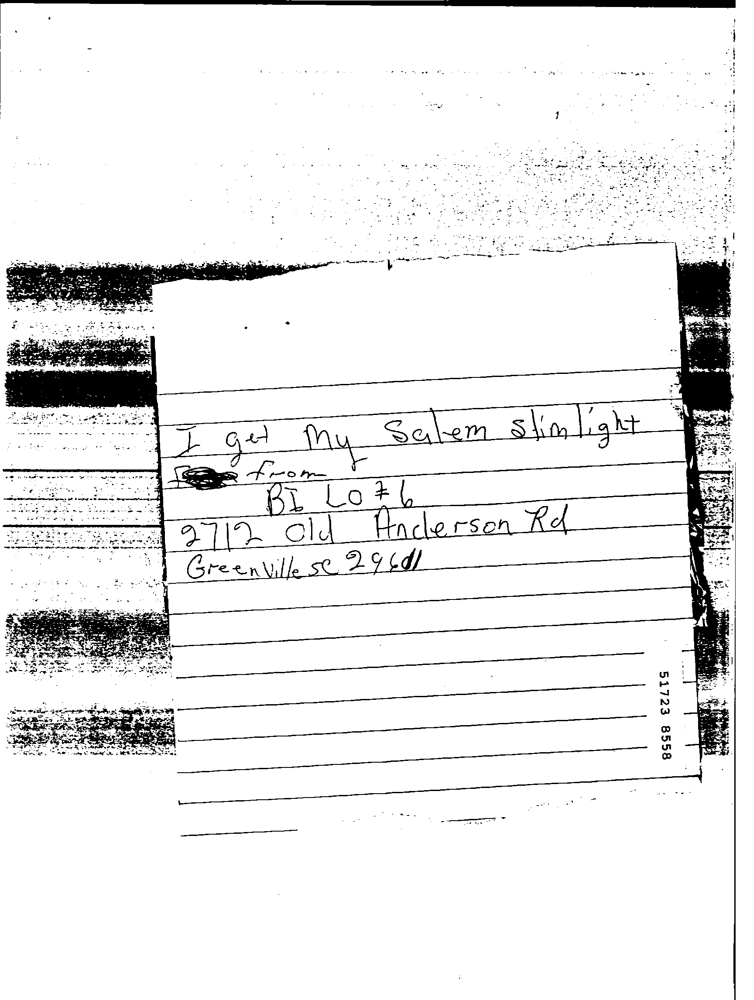 I get My Salem slim light
from
BI LO # 6
2712 Old Anderson Rd
Greenville SC 29611
51723 8558